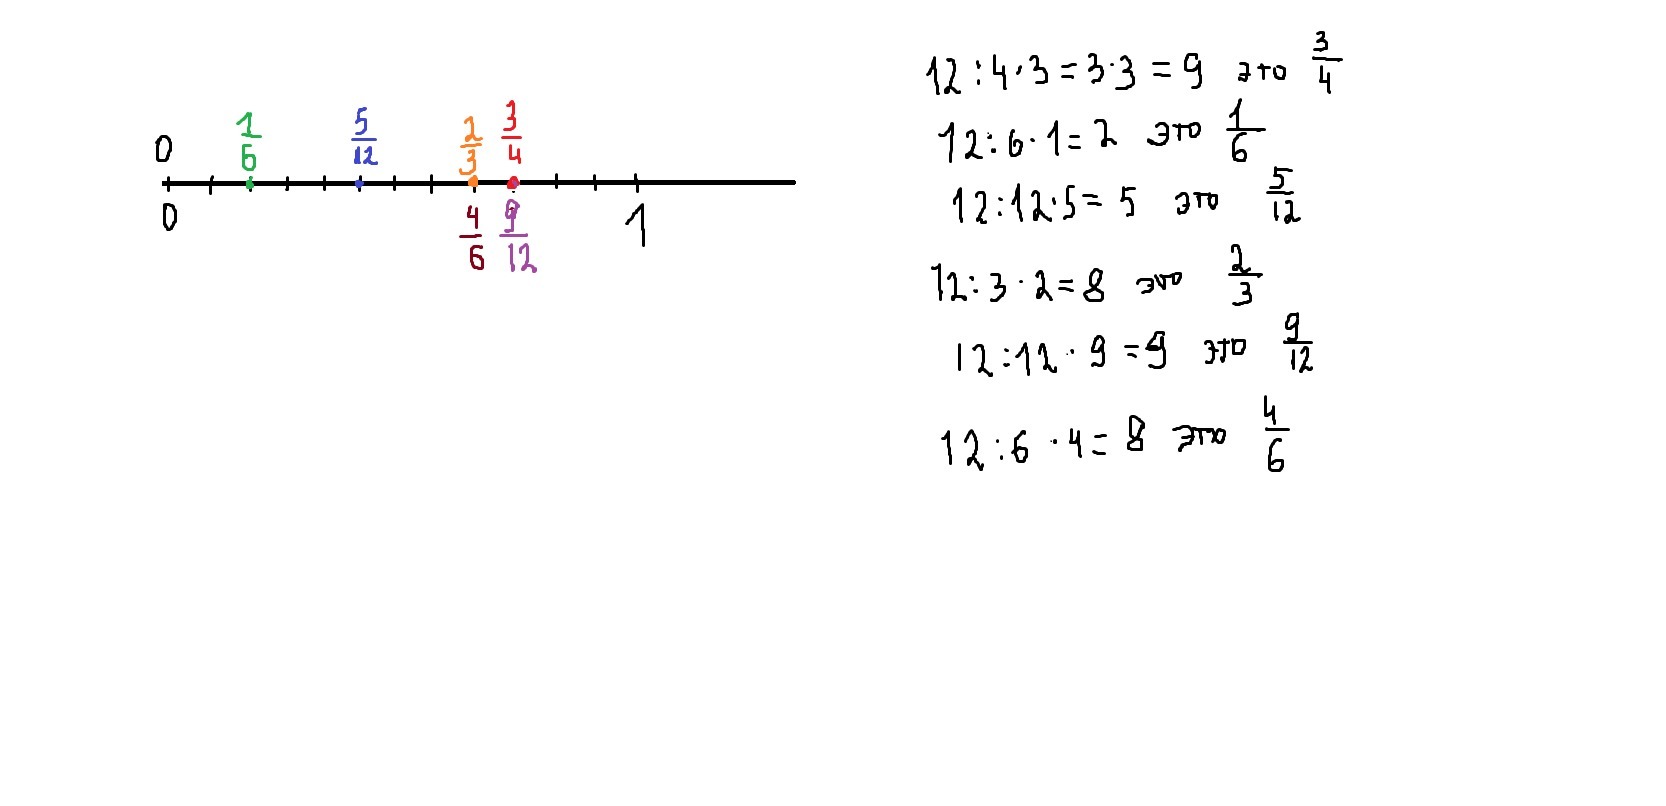 0 1/6 5/12 2/3 3/4
0 4/6 9/12 1
12 : 4 · 3 = 3 · 3 = 9 это 3/4
12 : 6 · 1 = 2 это 1/6
12 : 12 · 5 = 5 это 5/12
12 : 3 · 2 = 8 это 2/3
12 : 12 · 9 = 9 это 9/12
12 : 6 · 4 = 8 это 4/6